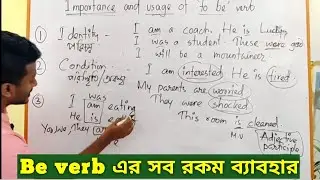 Importance and usage of "to be" verb
① Identity - I am a coach. He is Lucky.
I was a student. These were good
I will be a mountaineer.
② Condition - I am interested. He is tired.
My parents are worried
They were shocked
③ I was am eating
He is
You, we, They are
This room is cleaned
M.V
Adjective
participle
Be verb এর সব রকম ব্যাবহার